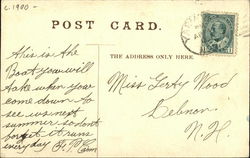 c.1900-
POST CARD.
THE ADDRESS ONLY HERE.
this is the
Boat you will
take when you
come down to
see us next
summer so dont
forget it runs
every day
Miss Gerty Wood
Lebnon
N.H.